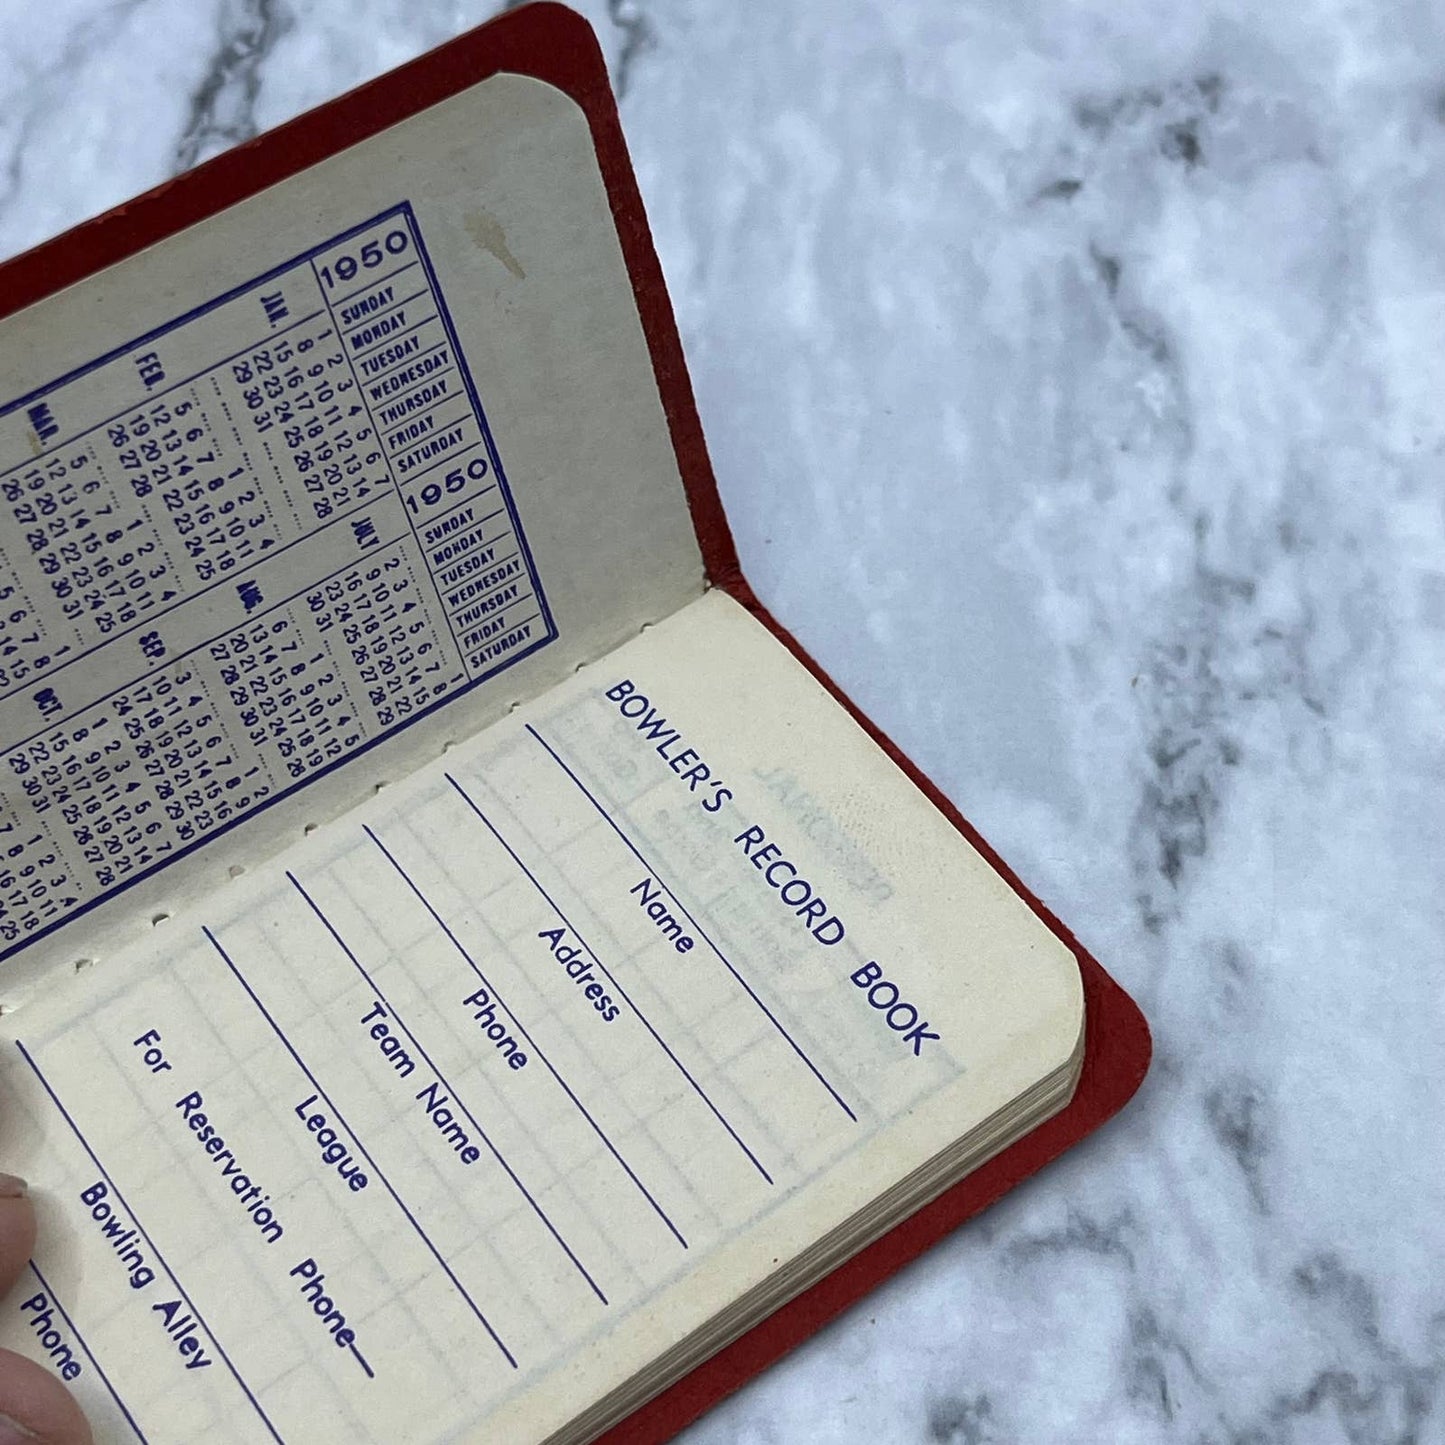 1950 JAN. FEB. MAR.
SUNDAY 1 8 15 22 29 5 12 19 26 5 12 19 26
MONDAY 2 9 16 23 30 6 13 20 27 6 13 20 27
TUESDAY 3 10 17 24 31 7 14 21 28 7 14 21 28
WEDNESDAY 4 11 18 25 1 8 15 22 1 8 15 22 29
THURSDAY 5 12 19 26 2 9 16 23 2 9 16 23 30
FRIDAY 6 13 20 27 3 10 17 24 3 10 17 24 31
SATURDAY 7 14 21 28 4 11 18 25 4 11 18 25 1 8 15
1950 JULY AUG. SEP. OCT.
SUNDAY 2 9 16 23 30 6 13 20 27 3 10 17 24 1 8 15 22 29
MONDAY 3 10 17 24 31 7 14 21 28 4 11 18 25 2 9 16 23 30
TUESDAY 4 11 18 25 1 8 15 22 29 5 12 19 26 3 10 17 24 31
WEDNESDAY 5 12 19 26 2 9 16 23 30 6 13 20 27 4 11 18 25 1
THURSDAY 6 13 20 27 3 10 17 24 31 7 14 21 28 5 12 19 26 2
FRIDAY 7 14 21 28 4 11 18 25 1 8 15 22 29 6 13 20 27 3 10 17 24
SATURDAY 1 8 15 22 29 5 12 19 26 2 9 16 23 30 7 14 21 28 4 11 18 25
BOWLER'S RECORD BOOK
Name
Address
Phone
Team Name
League
For Reservation Phone—
Bowling Alley
Phone